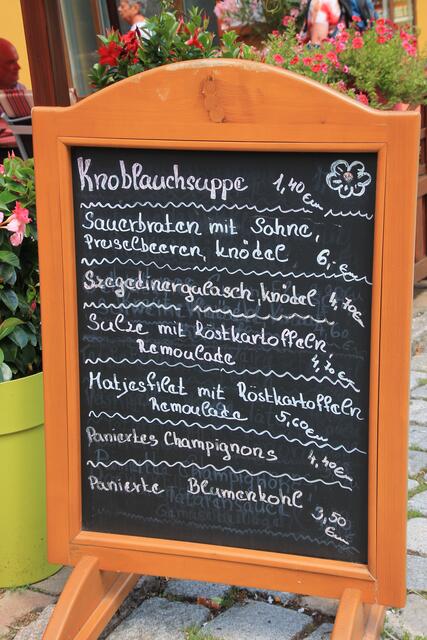 Knoblauchsuppe 1,40 Eur
Sauerbraten mit Sahne,
Preiselbeeren, knödel 6,- Eur
Szegedinergulasch, knödel 4,70 Eur
Sulze mit Röstkartoffeln,
Remoulade 4,70 Eur
Matjesfilet mit Röstkartoffeln
Remoulade 5,60 Eur
Paniertes Champignons 4,40 Eur
Panierte Blumenkohl 3,50
Eur